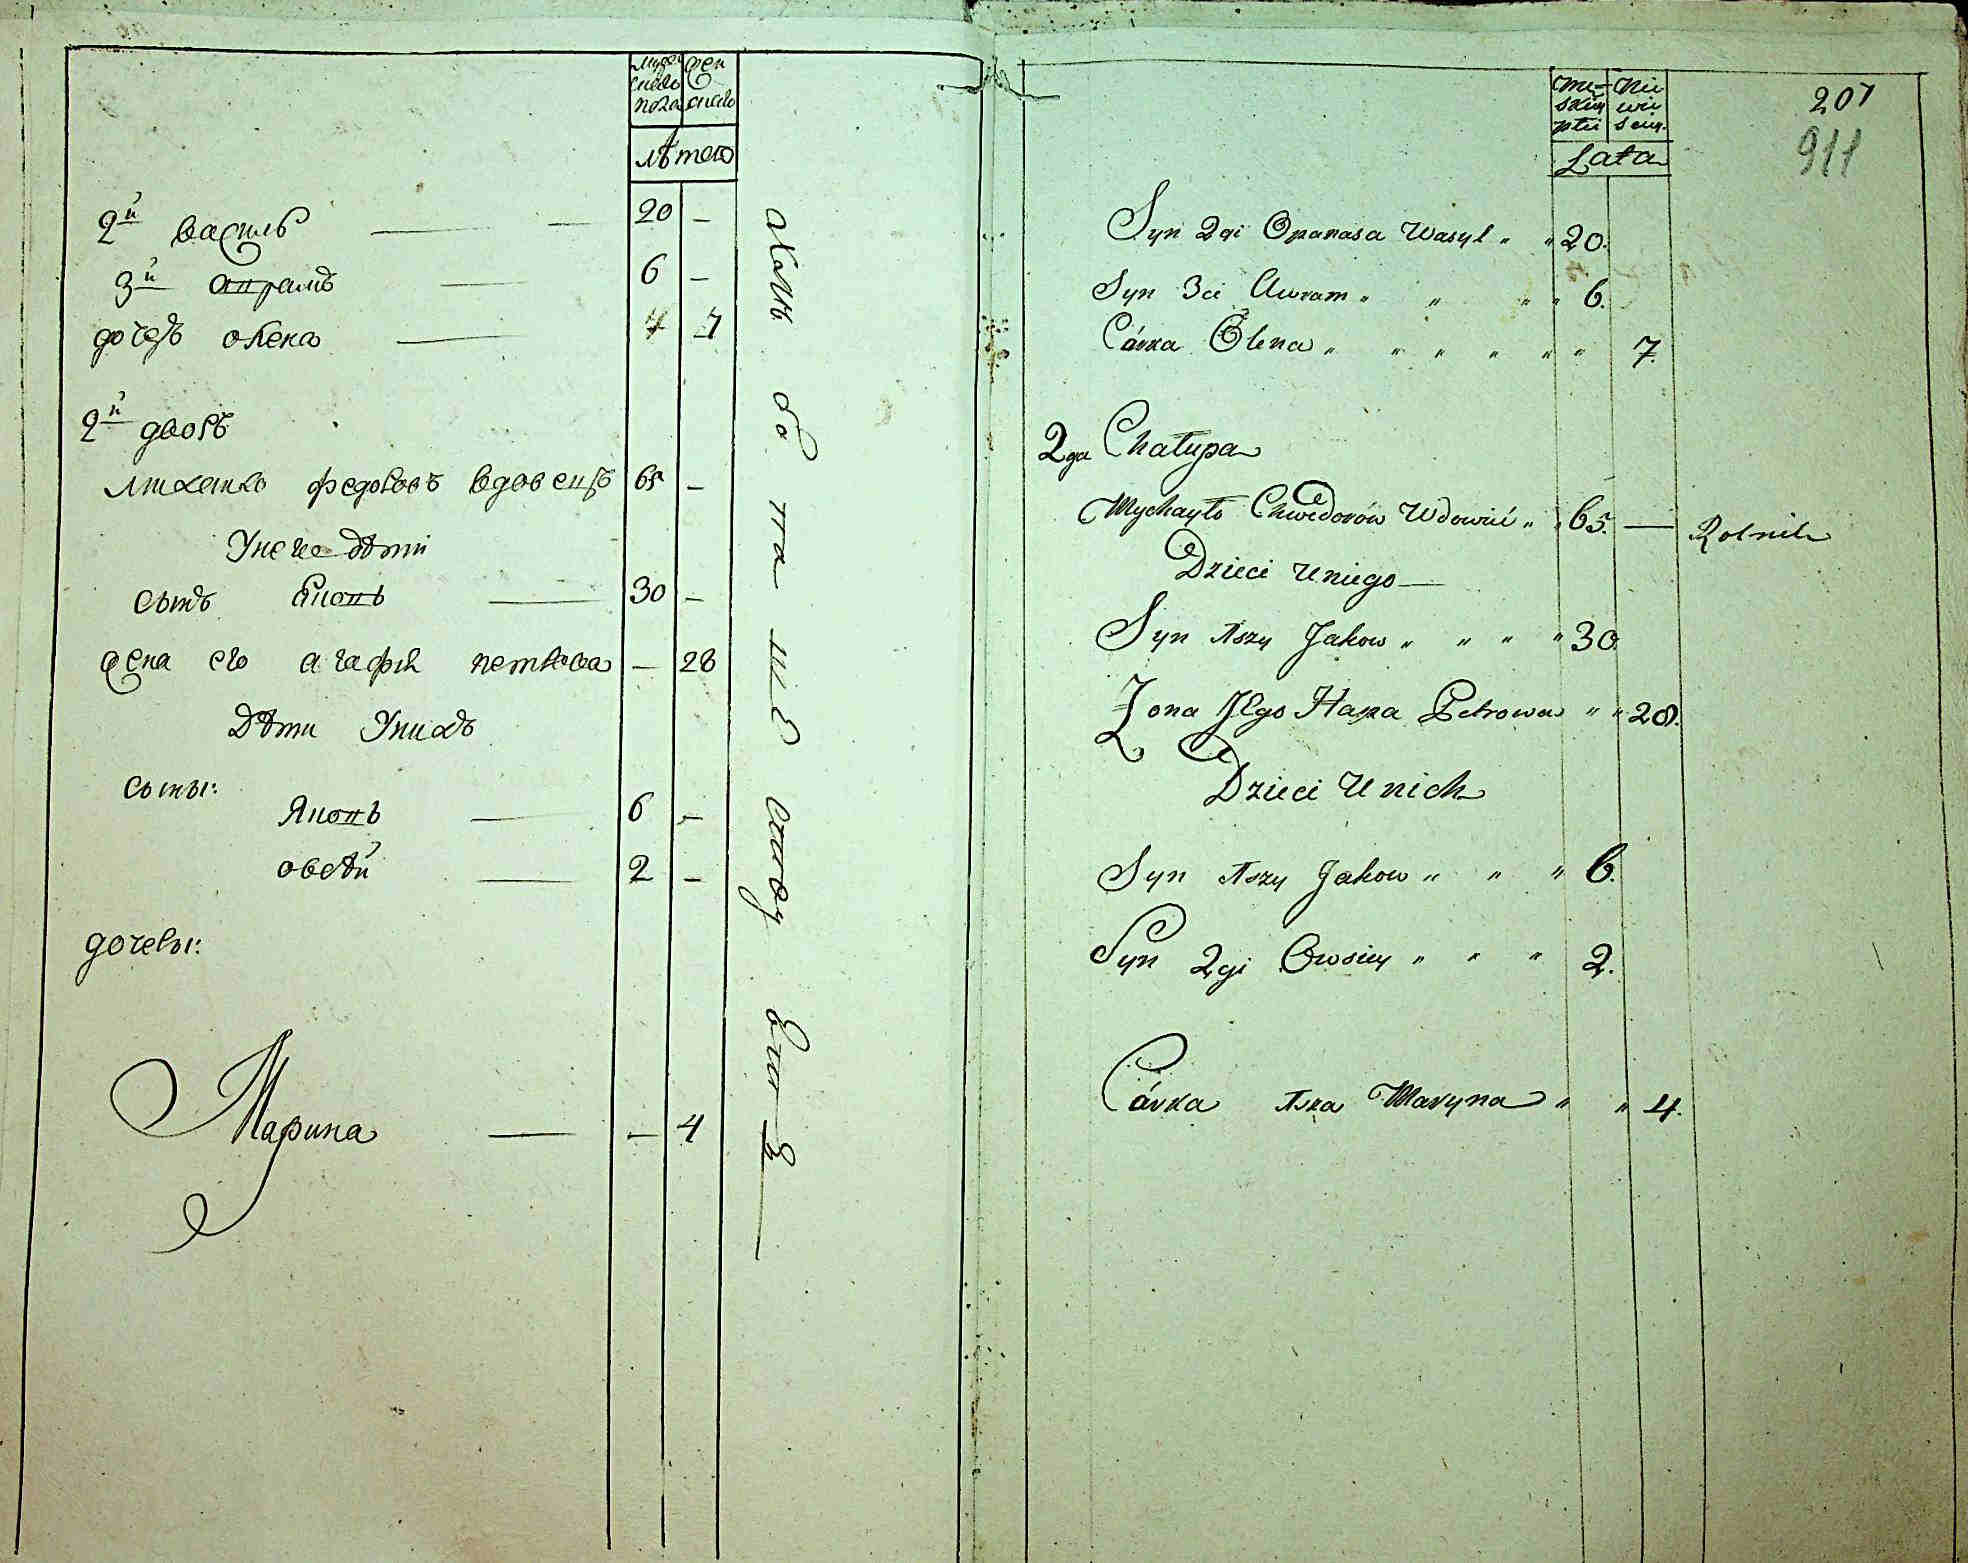 Мужеска пола
женска
лѣта
2й василь — — 20 —
3й апрамъ — 6 —
дочерь олена — 7
2й дворъ
михаило федоровъ вдовецъ 65 —
У него дѣти
сынъ — 30 —
жена его агафия петрова — 28
Дѣти У нихъ
сыны:
— 6 —
овсѣй — 2 —
дочеры:
Марина — — 4
201
911
Męskiey płci
Niewieściey
Lata
Syn 2gi Opanasa Wasyl " " 20.
Syn 3ci Awram " " " " 6.
Córka Olena " " " " " " 7.
2ga Chałupa
Mychayło Chwedorów Wdowiec " " 65. — Rolnik
Dzieci u niego —
Syn 1szy Jakow " " " " 30.
Żona Jego Hapa Petrowa " " 28.
Dzieci u nich
Syn 1szy Jakow " " " 6.
Syn 2gi Owsiey " " " 2.
Córka 1sza Maryna " " 4.